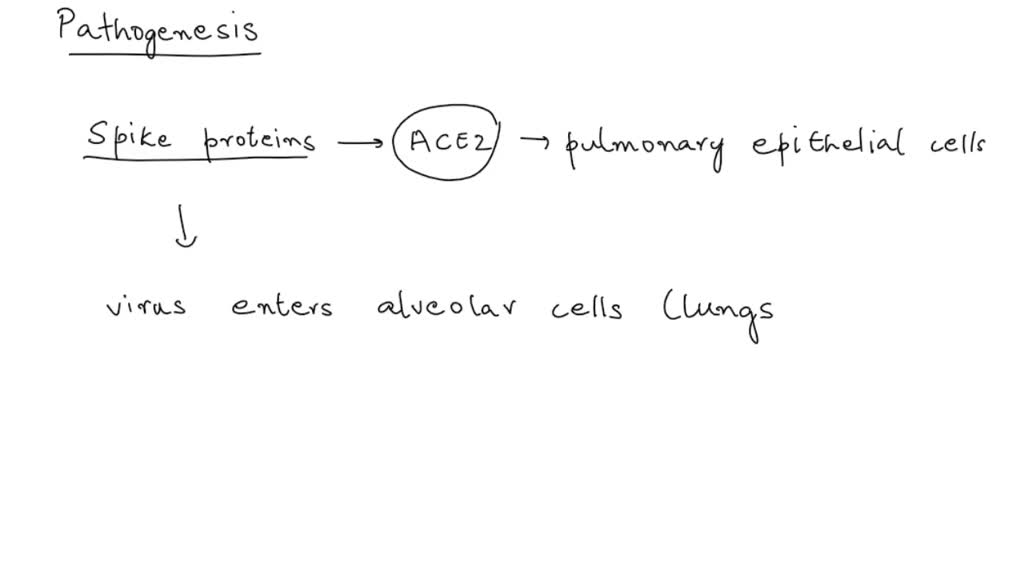 Pathogenesis
Spike proteins → ACE2 → pulmonary epithelial cells
↓
virus enters alveolar cells (lungs